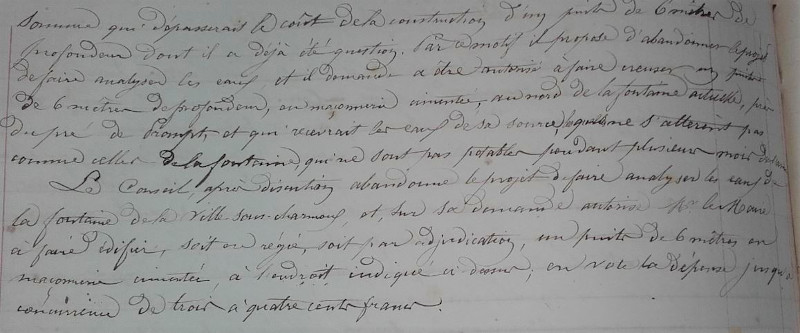 somme qui dépasserait le coût de la construction d'un puits de 6 mètres de
profondeur dont il a déjà été question. Par ce motif il propose d'abandonner le projet
de faire analyser les eaux et il demande a être autorisé à faire creuser un puits
de 6 mètres de profondeur, en maçonnerie cimentée, au nord de la fontaine actuelle, près
du pré de Prompt, et qui recevrait les eaux de sa source, ne s'altèrent pas
comme celles de la fontaine qui ne sont pas potables pendant plusieurs mois
Le Conseil, après discution abandonne le projet de faire analyser les eaux de
la fontaine de la Ville-sous-charmoux, et, sur sa demande autorise Mr le Maire
à faire édifier, soit en régie, soit par adjudication, un puits de 6 mètres en
maçonnerie cimentée, à l'endroit indiqué ci dessus; en vote la dépense jusqu'à
concurrence de trois à quatre cents francs.